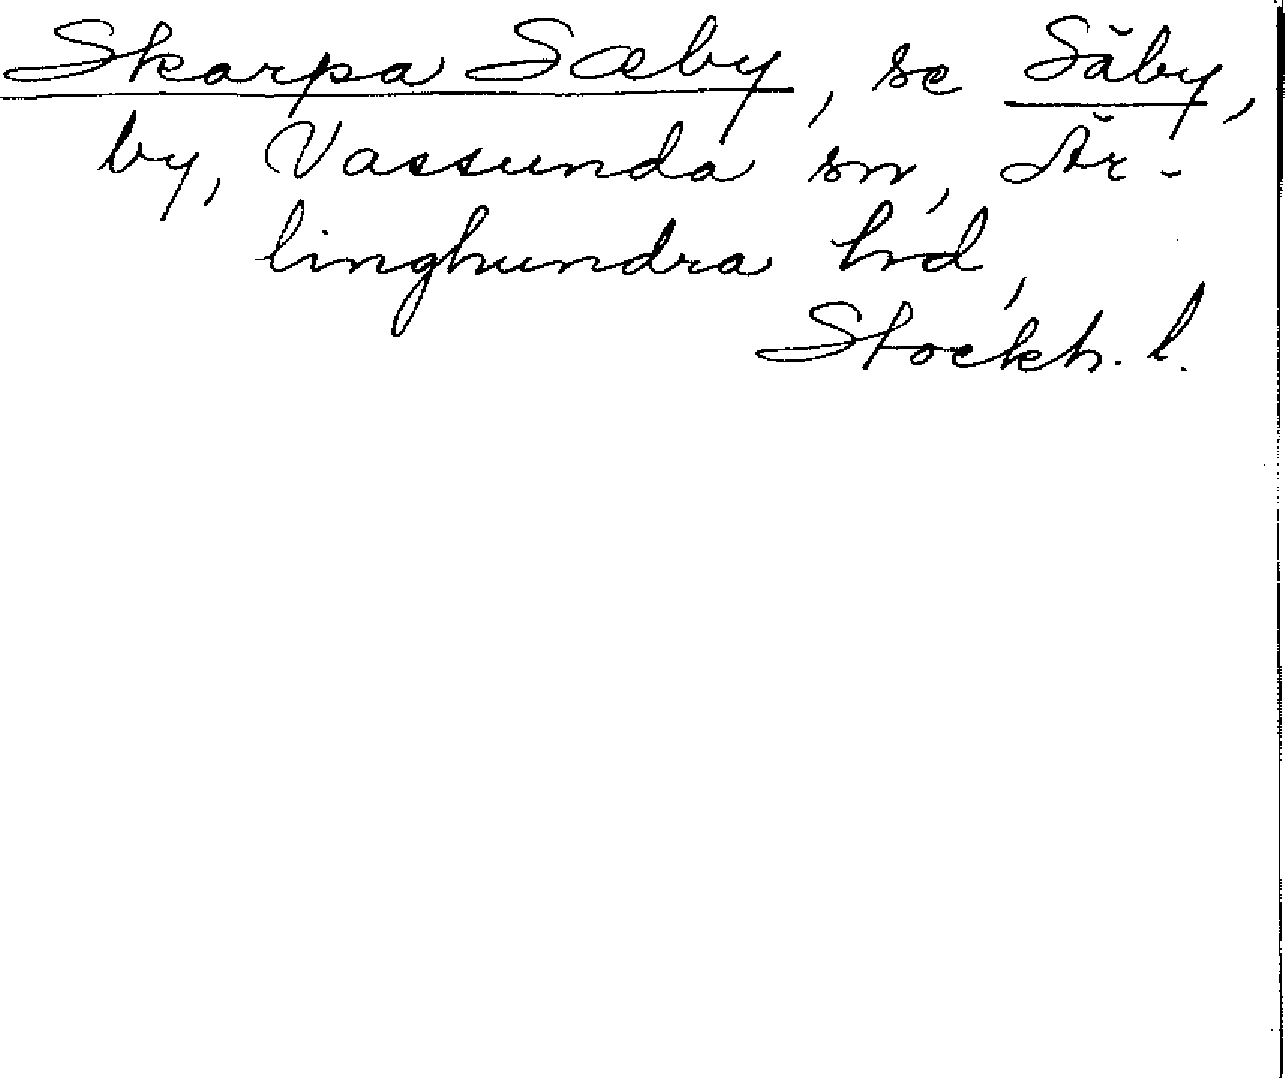 Skarpa Sæby, se Säby,
by, Vassunda sn, Är-
linghundra hd,
Stockh. l.